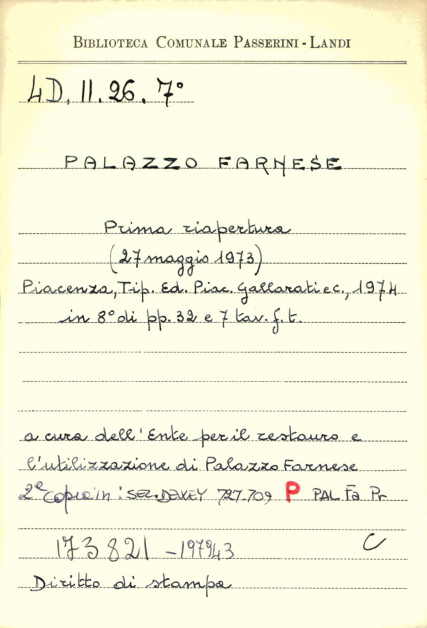 BIBLIOTECA COMUNALE PASSERINI - LANDI
4D. II. 26. 7°
PALAZZO FARNESE
Prima riapertura
(27 maggio 1973)
Piacenza, Tip. Ed. Piac. Gallarati e C., 1974
in 8° di pp. 32 e 7 tav. f. t.
a cura dell'Ente per il restauro e
l'utilizzazione di Palazzo Farnese
2ª copia in: SEZ. DEWEY 727.709 P PAL Fa Pr
173821 - 197943 C
Diritto di stampa